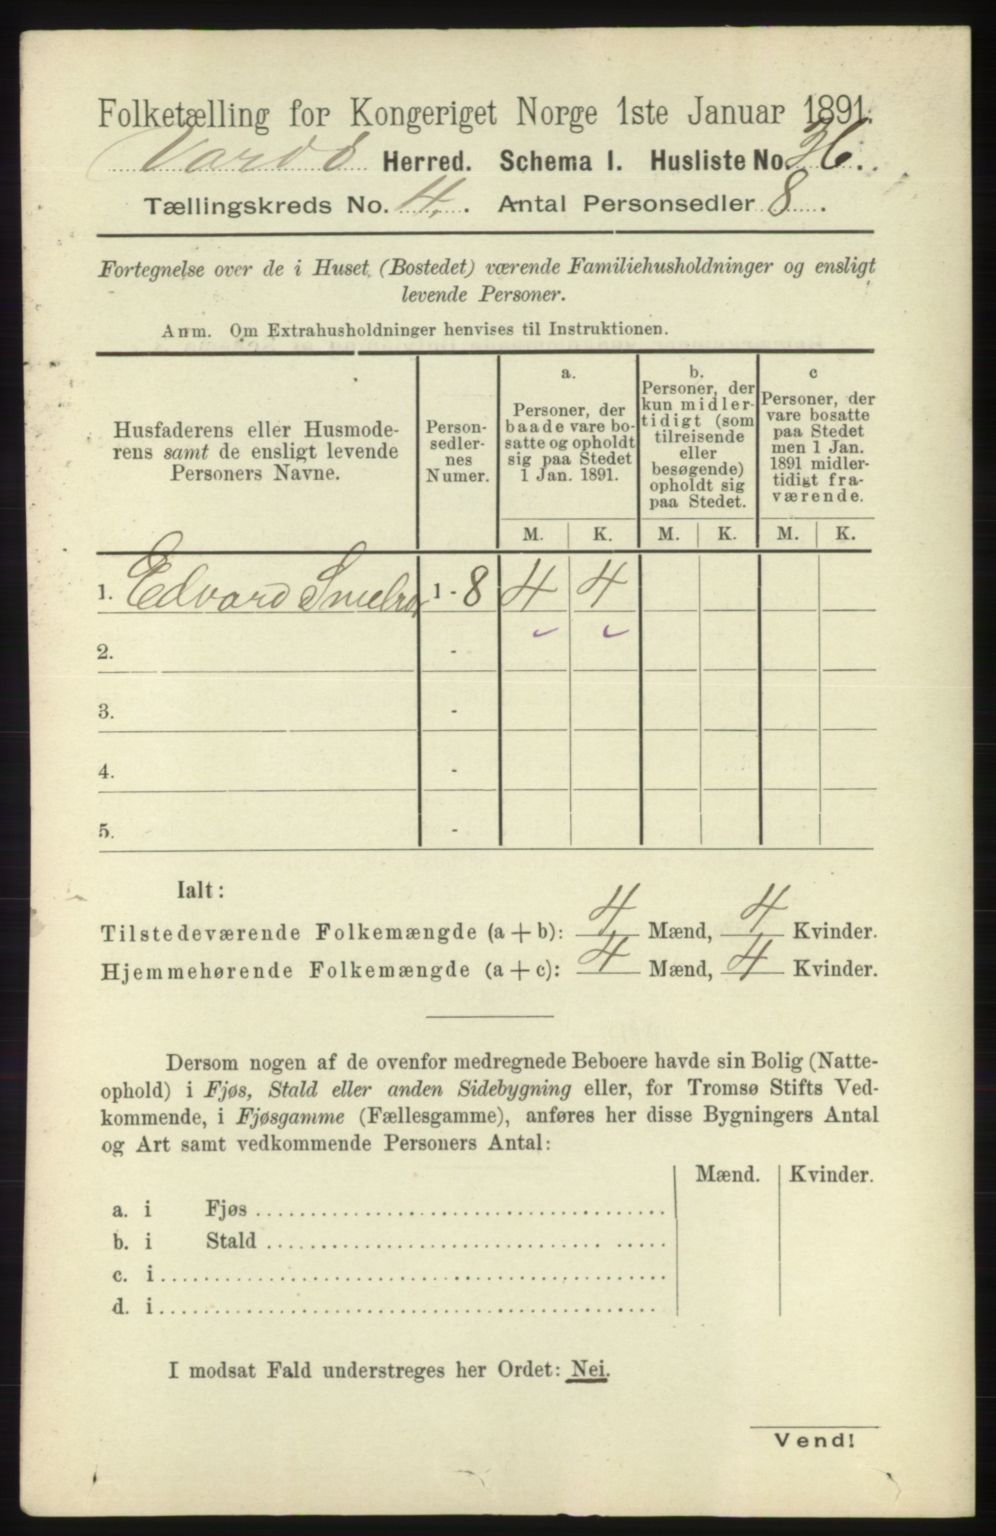 Folketælling for Kongeriget Norge 1ste Januar 1891.
Vardö Herred. Schema I. Husliste No. 36.
Tællingskreds No. 4. Antal Personsedler 8.
Fortegnelse over de i Huset (Bostedet) værende Familiehusholdninger og ensligt
levende Personer.
Anm. Om Extrahusholdninger henvises til Instruktionen.
Husfaderens eller Husmode-
rens samt de ensligt levende
Personers Navne.
Person-
sedler-
nes
Numer.
a.
Personer, der
baade vare bo-
satte og opholdt
sig paa Stedet
1 Jan. 1891.
b.
Personer, der
kun midler-
tidigt (som
tilreisende
eller
besøgende)
opholdt sig
paa Stedet.
c
Personer, der
vare bosatte
paa Stedet
men 1 Jan.
1891 midler-
tidigt fra-
værende.
M. K. M. K. M. K.
1. Edvard 1 - 8 4 4
2. -
3. -
4. -
5. -
Ialt:
Tilstedeværende Folkemængde (a + b): 4 Mænd, 4 Kvinder.
Hjemmehørende Folkemængde (a + c): 4 Mænd, 4 Kvinder.
Dersom nogen af de ovenfor medregnede Beboere havde sin Bolig (Natte-
ophold) i Fjøs, Stald eller anden Sidebygning eller, for Tromsø Stifts Ved-
kommende, i Fjøsgamme (Fællesgamme), anføres her disse Bygningers Antal
og Art samt vedkommende Personers Antal:
Mænd. Kvinder.
a. i Fjøs
b. i Stald
c. i
d. i
I modsat Fald understreges her Ordet: Nei.
Vend!